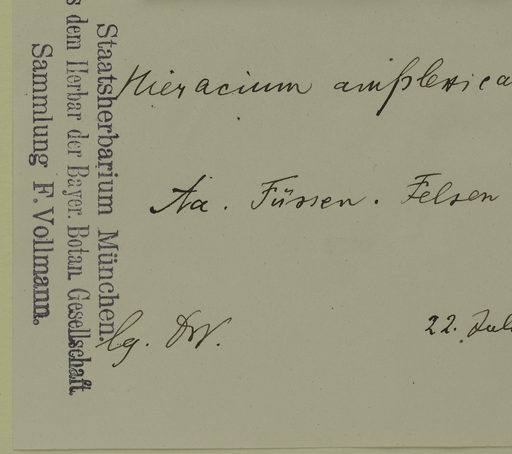 Staatsherbarium München.
s dem Herbar der Bayer. Botan. Gesellschaft
Sammlung F. Vollmann.
Hieracium amplexica
Aa. Füssen. Felsen
lg.
22. Juli